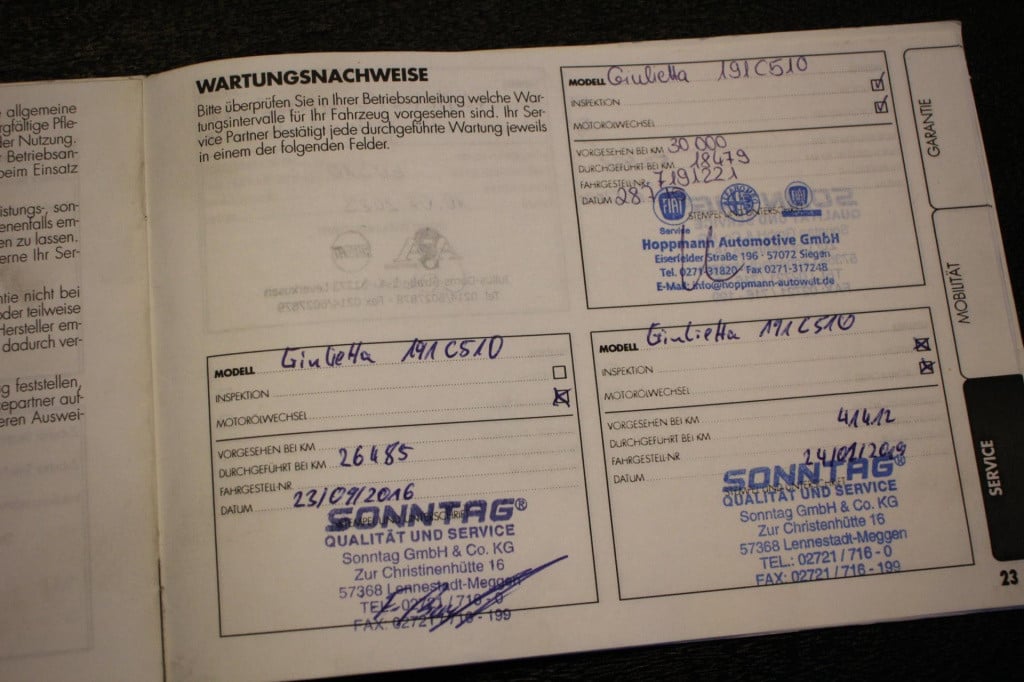 allgemeine
rgfältige Pfle-
der Nutzung.
Betriebsan-
beim Einsatz
istungs-, son-
enenfalls em-
en zu lassen.
erne Ihr Ser-
ntie nicht bei
oder teilweise
Hersteller em-
dadurch ver-
g feststellen,
epartner auf-
eren Auswei-
WARTUNGSNACHWEISE
Bitte überprüfen Sie in Ihrer Betriebsanleitung welche War-
tungsintervalle für Ihr Fahrzeug vorgesehen sind. Ihr Ser-
vice Partner bestätigt jede durchgeführte Wartung jeweils
in einem der folgenden Felder.
MODELL Giulietta 191C510
INSPEKTION
MOTORÖLWECHSEL
VORGESEHEN BEI KM 30 000
DURCHGEFÜHRT BEI KM 18479
FAHRGESTELL-NR. 7191221
DATUM 28.
STEMPEL UND UNTERSCHRIFT
FIAT
Service
Hoppmann Automotive GmbH
Eiserfelder Straße 196 · 57072 Siegen
Tel. 0271-31820 Fax 0271-317248
E-Mail: info@hoppmann-autowelt.de
MODELL Giulietta 191C510
INSPEKTION
MOTORÖLWECHSEL
VORGESEHEN BEI KM
DURCHGEFÜHRT BEI KM 26485
FAHRGESTELL-NR.
DATUM 23/09/2016
STEMPEL UND UNTERSCHRIFT
SONNTAG®
QUALITÄT UND SERVICE
Sonntag GmbH & Co. KG
Zur Christinenhütte 16
57368 Lennestadt-Meggen
TEL.: 02721 / 716 - 0
FAX: 02721 / 716 - 199
MODELL Giulietta 191C510
INSPEKTION
MOTORÖLWECHSEL
VORGESEHEN BEI KM
DURCHGEFÜHRT BEI KM 41412
FAHRGESTELL-NR.
DATUM 24/01/2019
STEMPEL UND UNTERSCHRIFT
SONNTAG®
QUALITÄT UND SERVICE
Sonntag GmbH & Co. KG
Zur Christenhütte 16
57368 Lennestadt-Meggen
TEL.: 02721 / 716 - 0
FAX: 02721 / 716 - 199
GARANTIE
MOBILITÄT
SERVICE
23